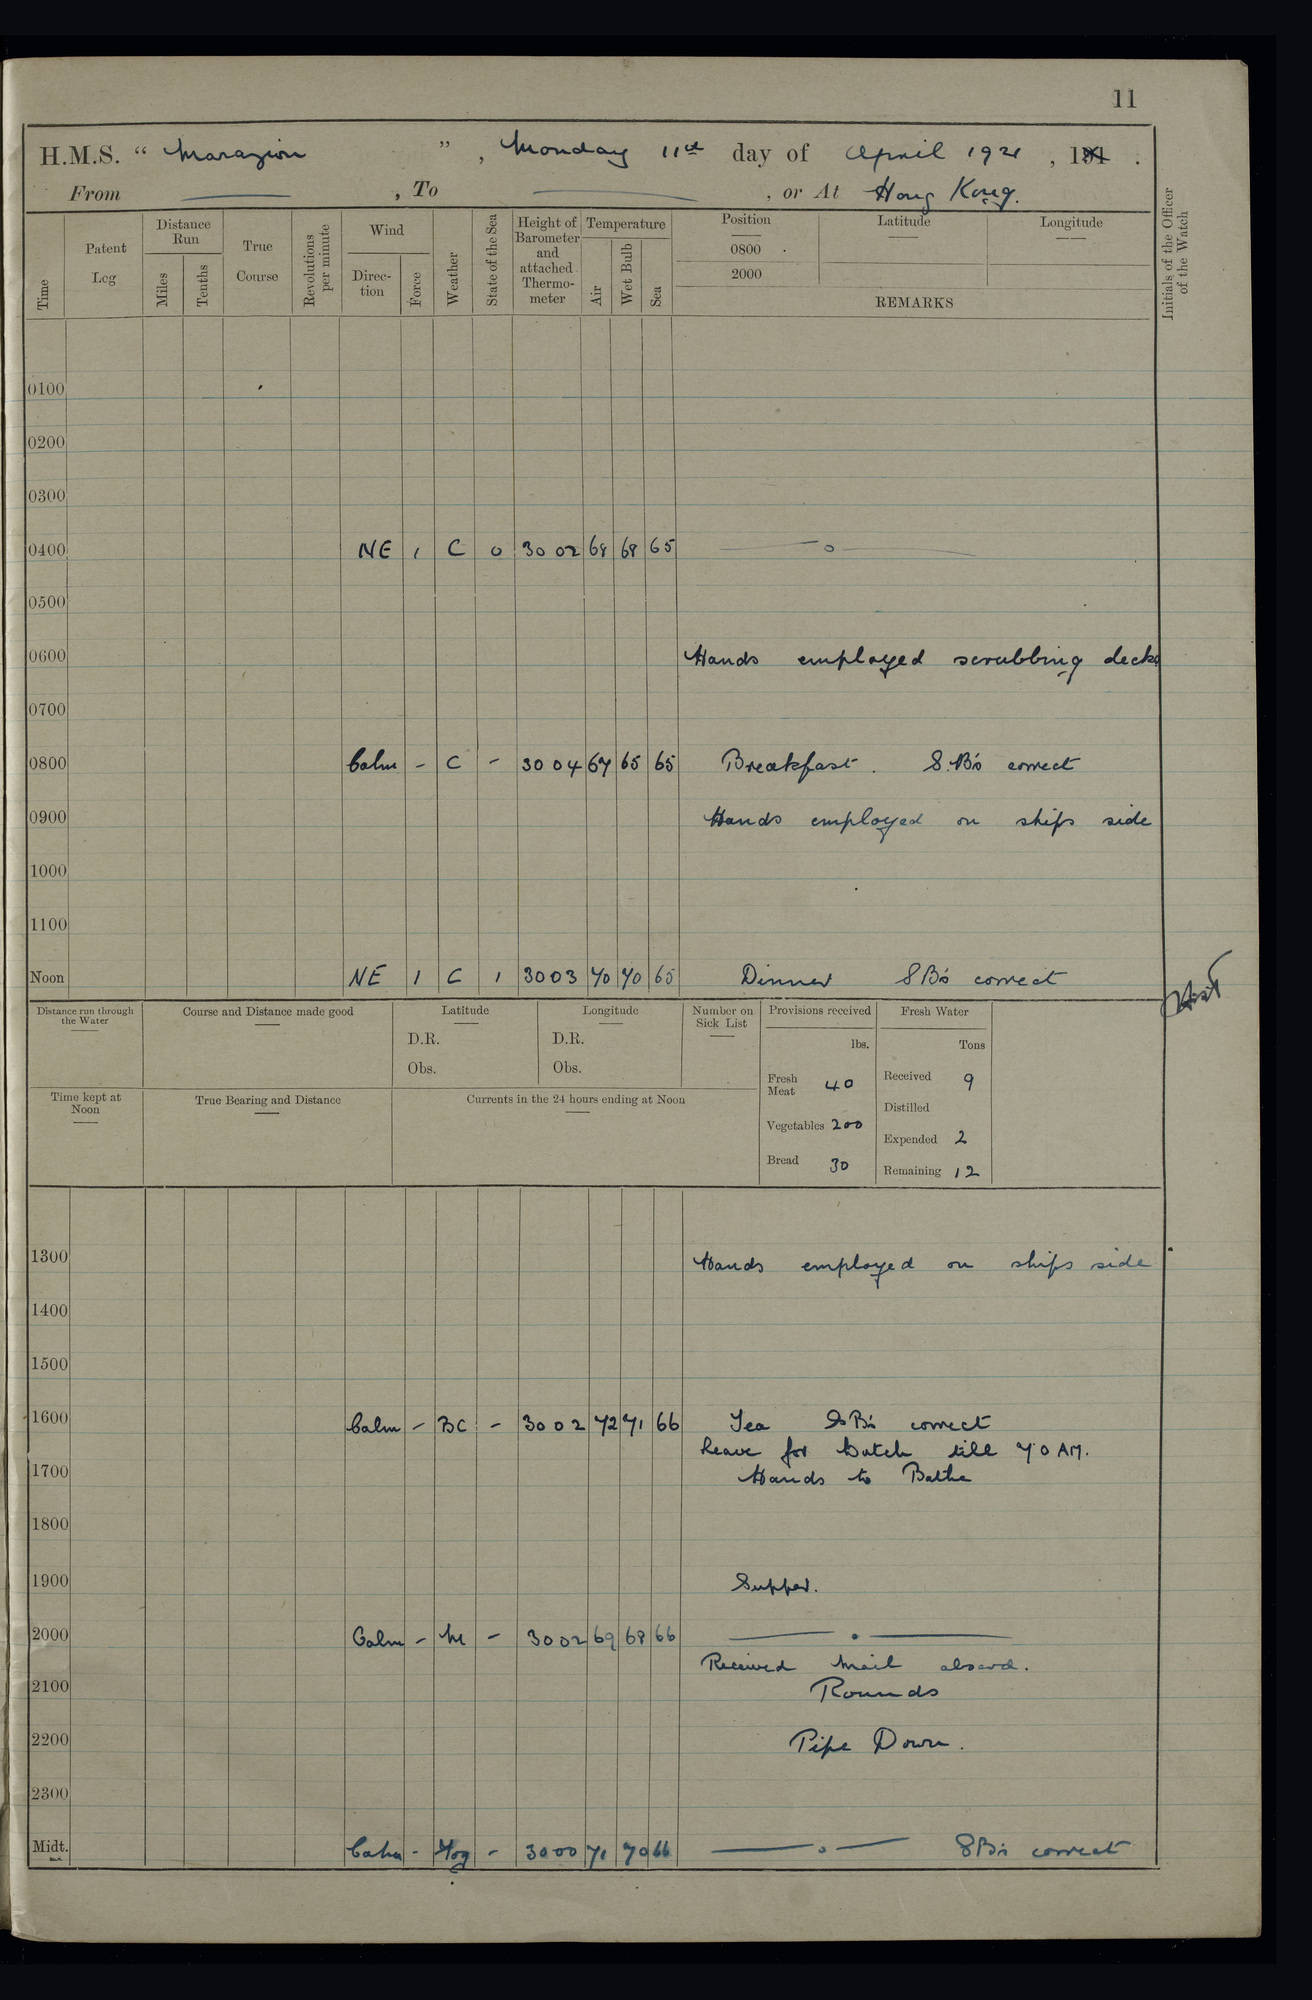 11
H.M.S. “ Marazion ” , Monday 11th day of April 1921 , 191 .
From — , To — , or At Hong Kong.
Time
Patent Log
Distance Run
Miles
Tenths
True Course
Revolutions per minute
Wind
Direction
Force
Weather
State of the Sea
Height of Barometer and attached Thermometer
Temperature
Air
Wet Bulb
Sea
Position
0800
2000
Latitude
Longitude
REMARKS
Initials of the Officer of the Watch
0100
0200
0300
0400 NE 1 C 0 30 02 68 68 65 — o —
0500
0600 Hands employed scrubbing decks
0700
0800 Calm - C - 30 04 67 65 65 Breakfast . S.B's correct
0900 Hands employed on ships side
1000
1100
Noon NE 1 C 1 30 03 70 70 65 Dinner SB's correct
Distance run through the Water
Course and Distance made good
Latitude
D.R.
Obs.
Longitude
D.R.
Obs.
Number on Sick List
Provisions received
lbs.
Fresh Meat 40
Vegetables 200
Bread 30
Fresh Water
Tons
Received 9
Distilled
Expended 2
Remaining 12
Time kept at Noon
True Bearing and Distance
Currents in the 24 hours ending at Noon
1300 Hands employed on ships side
1400
1500
1600 Calm - BC - 30 02 72 71 66 Tea SB's correct
Leave for Watch till 7.0 AM.
1700 Hands to Bathe
1800
1900 Supper.
2000 Calm - M - 30 02 69 68 66 — . —
Received Mail aboard.
2100 Rounds
2200 Pipe Down.
2300
Midt. Calm - Fog - 30 00 71 70 66 — o — SB's correct